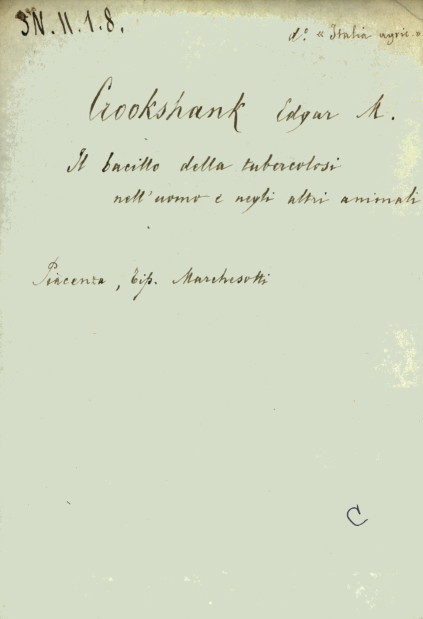 SN.II.1.8.
d.º « Italia agric. »
Crookshank Edgar M.
Il bacillo della tubercolosi
nell'uomo e negli altri animali
Piacenza, Tip. Marchesotti
C